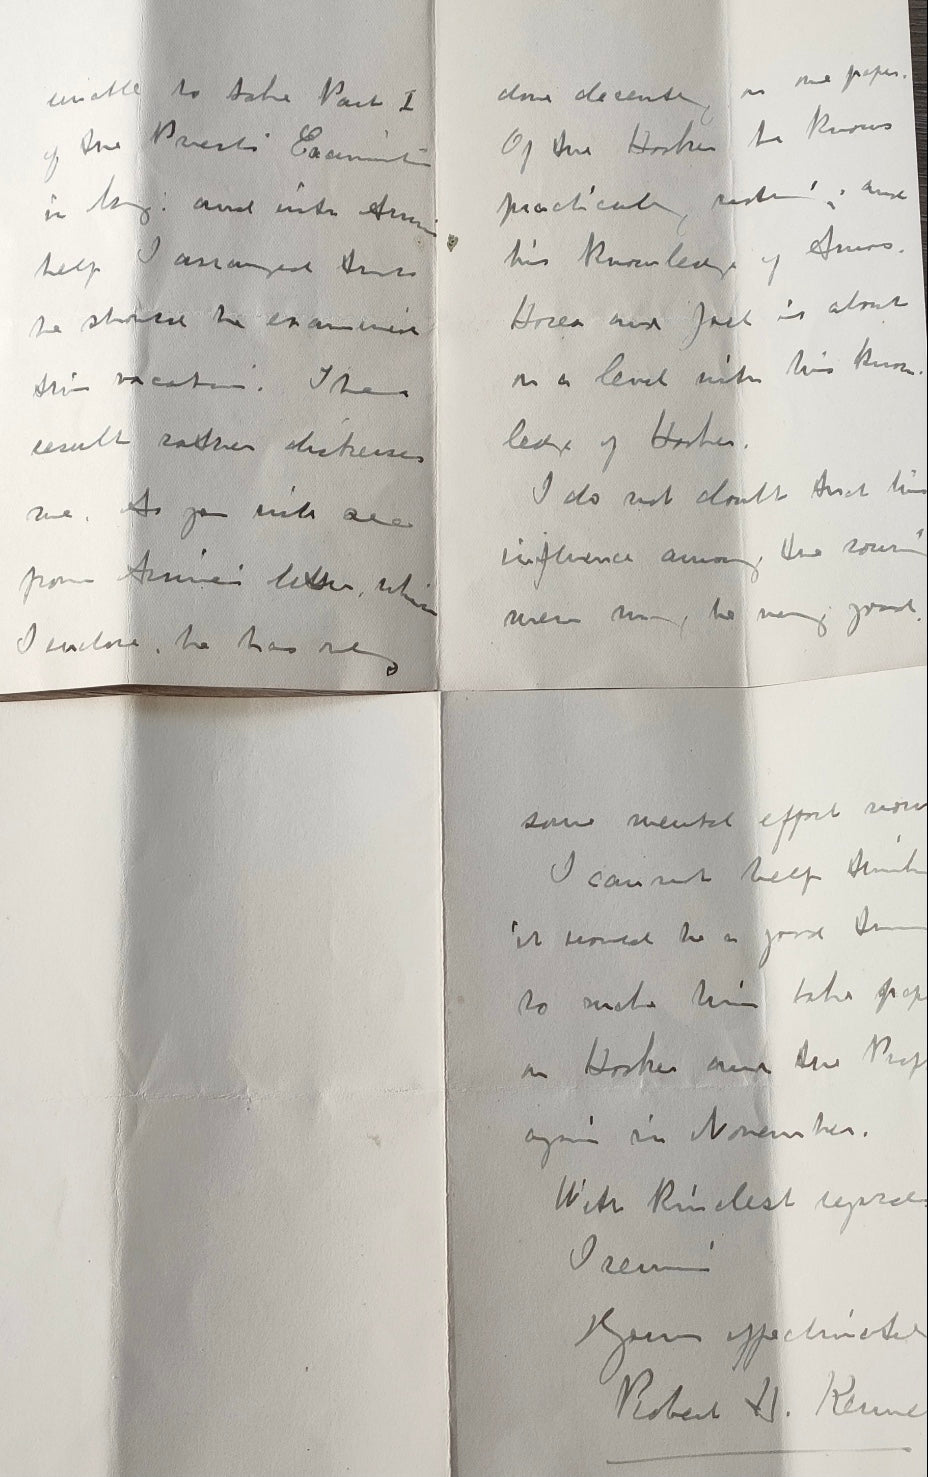 unable to take Part I
of the Priest's Examination
in May: and with
help I arranged that
he should be examined
this vacation. The
result rather distresses
me. As you will see
from letter, which
I enclose, he has only
done decently in one paper.
Of the Hooker he knows
practically nothing; and
his knowledge of Amos.
Hosea and Joel is about
on a level with his know-
ledge of Hooker.
I do not doubt that his
influence among the
men may be very good.
some mental effort now
I cannot help think
it would be a good thing
to make him take pap
on Hooker and the Prop
again in November.
With kindest regards
I remain
Yours affectionately
Robert H. Kenne